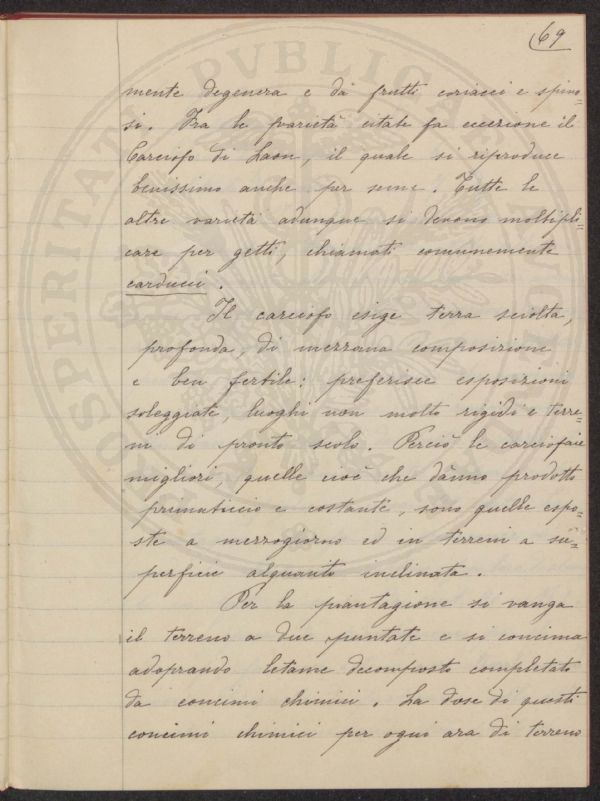 69
mente degenera e dà frutti coriacei e spino=
si. Fra le varietà citate fa eccezione il
Carciofo di Laon, il quale si riproduce
benissimo anche per seme. Tutte le
altre varietà adunque si devono moltipli=
care per getti, chiamati comunemente
carducci.
Il carciofo esige terra sciolta,
profonda, di mezzana composizione
e ben fertile: preferisce esposizioni
soleggiate, luoghi non molto rigidi e terre=
ni di pronto scolo. Perciò le carciofaie
migliori, quelle cioè che dànno prodotto
primaticcio e costante, sono quelle espo=
ste a mezzogiorno ed in terreni a su=
perficie alquanto inclinata.
Per la piantagione si vanga
il terreno a due puntate e si concima
adoprando letame decomposto completato
da concimi chimici. La dose di questi
concimi chimici per ogni ara di terreno